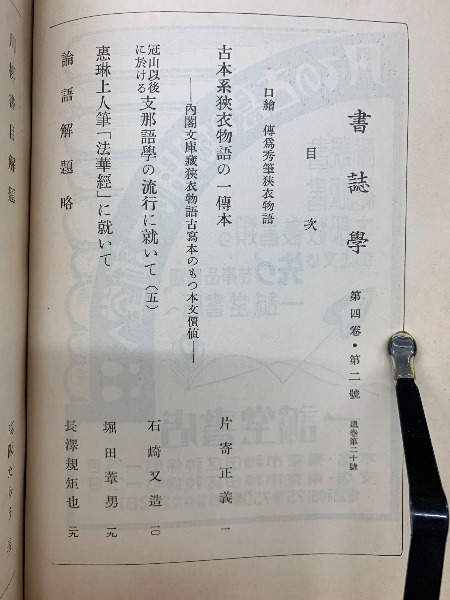 書誌學 第四卷・第二號 通卷第二十號
目次
口繪 傳爲秀筆狹衣物語
古本系狹衣物語の一傳本
――內閣文庫藏狹衣物語古寫本のもつ本文價値――
片寄正義 一
冠山以後に於ける支那語學の流行に就いて（五） 石崎又造 一〇
惠琳上人筆「法華經」に就いて 堀田葦男 一九
論語解題略 長澤規矩也 二九
書目解題